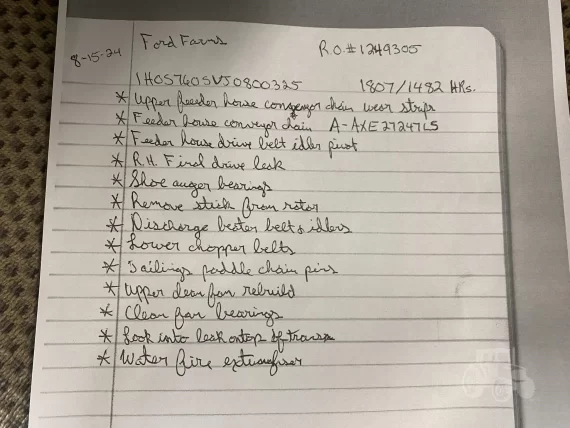 8-15-24 Ford Farms R.O.#1249305
1H0S740SVJ0800325 1807/1482 HRs.
* Upper feeder house conveyor chain wear strips
* Feeder house conveyor chain A-AXE27247LS
* Feeder house drive belt idler pivot
* R.H. Final drive leak
* Shoe auger bearings
* Remove stick from rotor
* Discharge beater belts idlers
* Lower chopper belts
* Tailings paddle chain pins
* Upper clean fan rebuild
* Clean fan bearings
* Look into leak on top of trans
* Water fire extinguiser